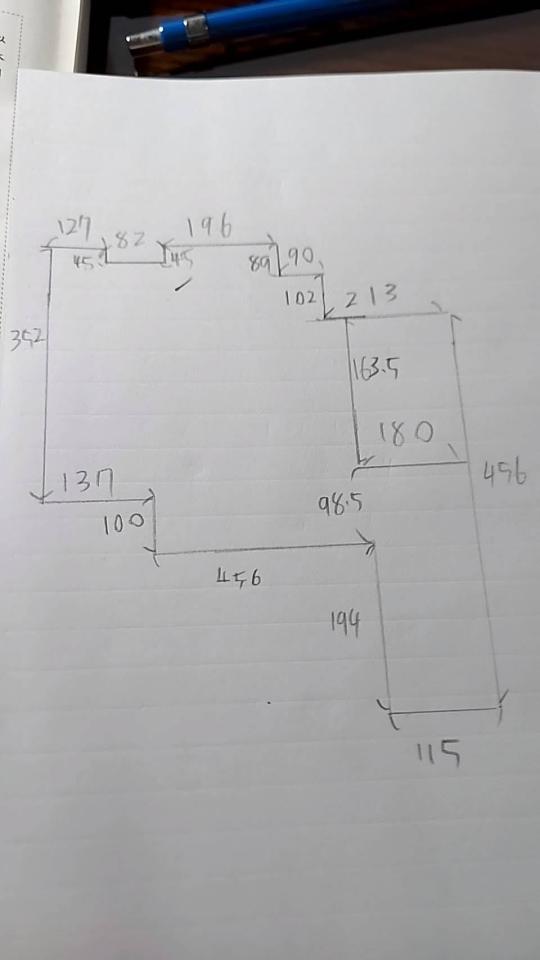 127 82 196
45 45 89 90
102 213
352
163.5
180
137 456
100 98.5
456
194
115